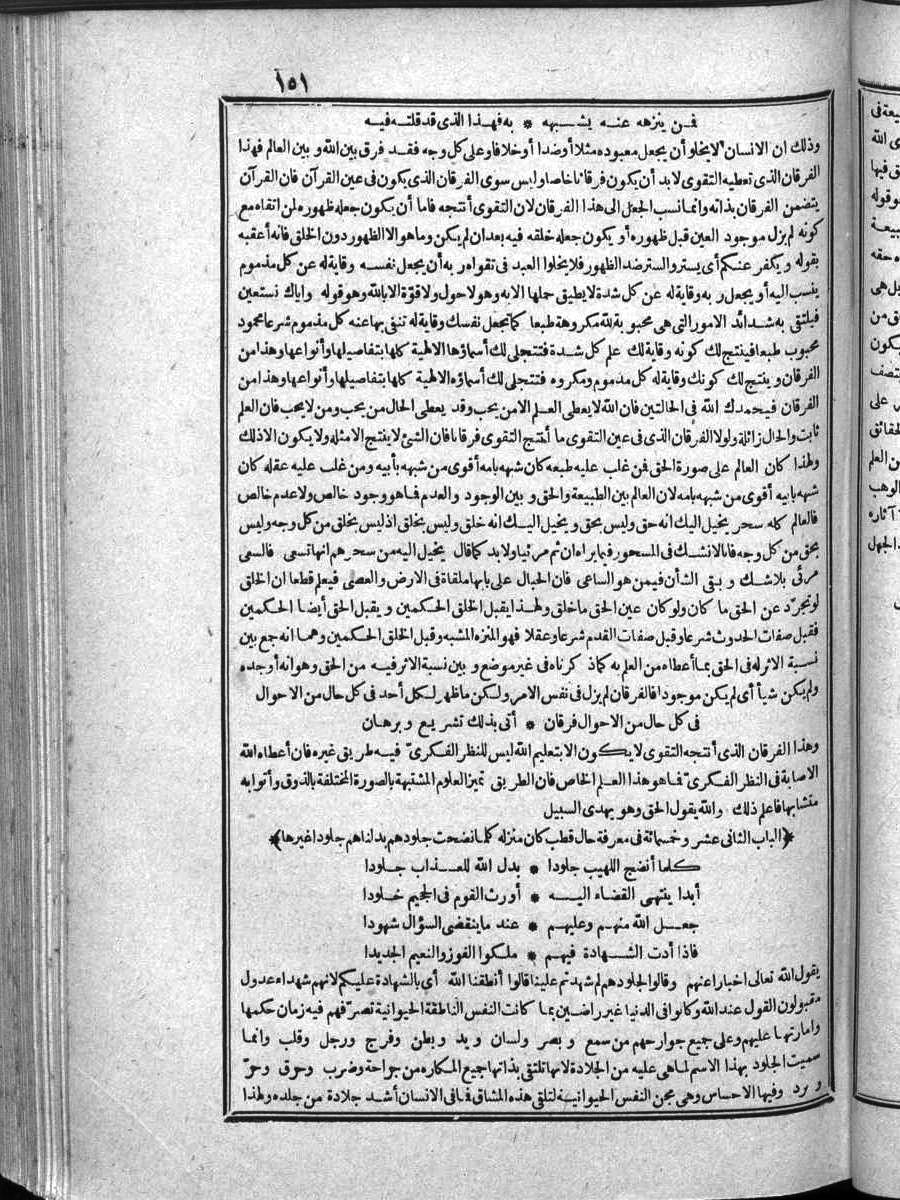 ١٥١
فمن ينزهه عنه يشبهه * به فهذا الذى قد قلته فيه
وذلك ان الانسان لا يخلو أن يجعل معبوده مثلا أو ضدا أو خلافا وعلى كل وجه فقد فرق بين الله و بين العالم فهذا
الفرقان الذى تعطيه التقوى لابد أن يكون فرقانا خاصا وليس سوى الفرقان الذى يكون فى عين القرآن فان القرآن
يتضمن الفرقان بذاته وانما نسب الجعل الى هذا الفرقان لان التقوى أنتجه فاما أن يكون جعله ظهوره لمن اتقاه مع
كونه لم يزل موجود العين قبل ظهوره أو يكون جعله خلقه فيه بعدان لم يكن وماهو الا الظهور دون الخلق فانه أعقبه
بقوله ويكفر عنكم أى يستر والستر ضد الظهور فلا يخلوا العبد فى تقواه ربه أن يجعل نفسه وقاية له عن كل مذموم
ينسب اليه أو يجعل ربه وقاية له عن كل شدة لا يطيق حملها الا به وهو لاحول ولا قوّة الا بالله وهو قوله واياك نستعين
فيلتقى به شدائد الامور التى هى محبوبة لله مكروهة طبعا كما تجعل نفسك وقاية له تنفى بها عنه كل مذموم شرعا محمود
محبوب طبعا فينتج لك كونه وقاية لك علم كل شدة فتتجلى لك أسماؤها الالهية كلها بتفاصيلها وأنواعها وهذا من
الفرقان وينتج لك كونك وقاية له كل مذموم ومكروه فتتجلى لك أسماؤه الالهية كلها بتفاصيلها وأنواعها وهذا من
الفرقان فيحمدك الله فى الحالتين فان الله لا يعطى العلم الا من يحب وقد يعطى الحال من يحب ومن لا يحب فان العلم
ثابت والحال زائلة ولولا الفرقان الذى فى عين التقوى ما أنتج التقوى فرقانا فان الشئ لا ينتج الا مثله ولا يكون الا ذلك
ولهذا كان العالم على صورة الحق فمن غلب عليه طبعه كان شبهه بامه أقوى من شبهه بأبيه ومن غلب عليه عقله كان
شبهه بابيه أقوى من شبهه بامه لان العالم بين الطبيعة والحق و بين الوجود والعدم فما هو وجود خالص ولا عدم خالص
فالعالم كله سحر يخيل اليك انه حق وليس بحق و يخيل اليك انه خلق وليس بخلق اذ ليس بخلق من كل وجه وليس
بحق من كل وجه فانا لا نشك فى المسحور فيما يراه ان ثم مرئيا ولا بد كما قال يخيل اليه من سحرهم انها تسعى فالسعى
مرئى بلاشك و بقى الشأن فيمن هو الساعى فان الحبال على بابها ملقاة فى الارض والعصى فيعلم قطعا ان الخلق
لو تجرّد عن الحق ما كان ولو كان عين الحق ما خلق ولهذا يقبل الخلق الحكمين و يقبل الحق أيضا الحكمين
فقبل صفات الحدوث شرعا وقبل صفات القدم شرعا وعقلا فهو المنزه المشبه وقبل الخلق الحكمين وهما انه جمع بين
نسبة الاثر له فى الحق بما أعطاه من العلم به كما ذكرناه فى غير موضع و بين نسبة الاثر فيه من الحق وهو انه أوجده
ولم يكن شيأ أى لم يكن موجودا فالفرقان لم يزل فى نفس الامر ولكن ما ظهر لكل أحد فى كل حال من الاحوال
فى كل حال من الاحوال فرقان * أتى بذلك تشريع وبرهان
وهذا الفرقان الذى أنتجه التقوى لا يكون الا بتعليم الله ليس للنظر الفكرىّ فيه طريق غيره فان أعطاه الله
الاصابة فى النظر الفكرىّ فما هو هذا العلم الخاص فان الطريق تميز العلوم المشتبهة بالصورة المختلفة بالذوق وأتوا به
متشابها فاعلم ذلك والله يقول الحق وهو يهدى السبيل
﴿الباب الثانى عشر وخمسمائة فى معرفة حال قطب كان منزله كلما نضجت جلودهم بدلناهم جلودا غيرها﴾
كلما أنضج اللهيب جلودا * بدل الله للعذاب جلودا
أبدا ينتهى القضاء اليه * أورث القوم فى الجحيم خلودا
جعل الله منهم وعليهم * عند ما ينقضى السؤال شهودا
فاذا أدت الشهادة فيهم * ملكوا الفوز والنعيم الجديدا
يقول الله تعالى اخبارا عنهم وقالوا لجلودهم لم شهدتم علينا قالوا أنطقنا الله أى بالشهادة عليكم لانهم شهداء عدول
مقبولون القول عند الله وكانوا فى الدنيا غير راضين بما كانت النفس الناطقة الحيوانية تصرّفهم فيه زمان حكمها
وامارتها عليهم وعلى جميع جوارحهم من سمع و بصر ولسان ويد وبطن وفرج ورجل وقلب وانما
سميت الجلود بهذا الاسم لما هى عليه من الجلادة لانها تلتقى بذاتها جميع المكاره من جراحة وضرب وحرق وحرّ
وبرد وفيها الاحساس وهى مجن النفس الحيوانية لتلقى هذه المشاق فما فى الانسان أشد جلادة من جلده ولهذا